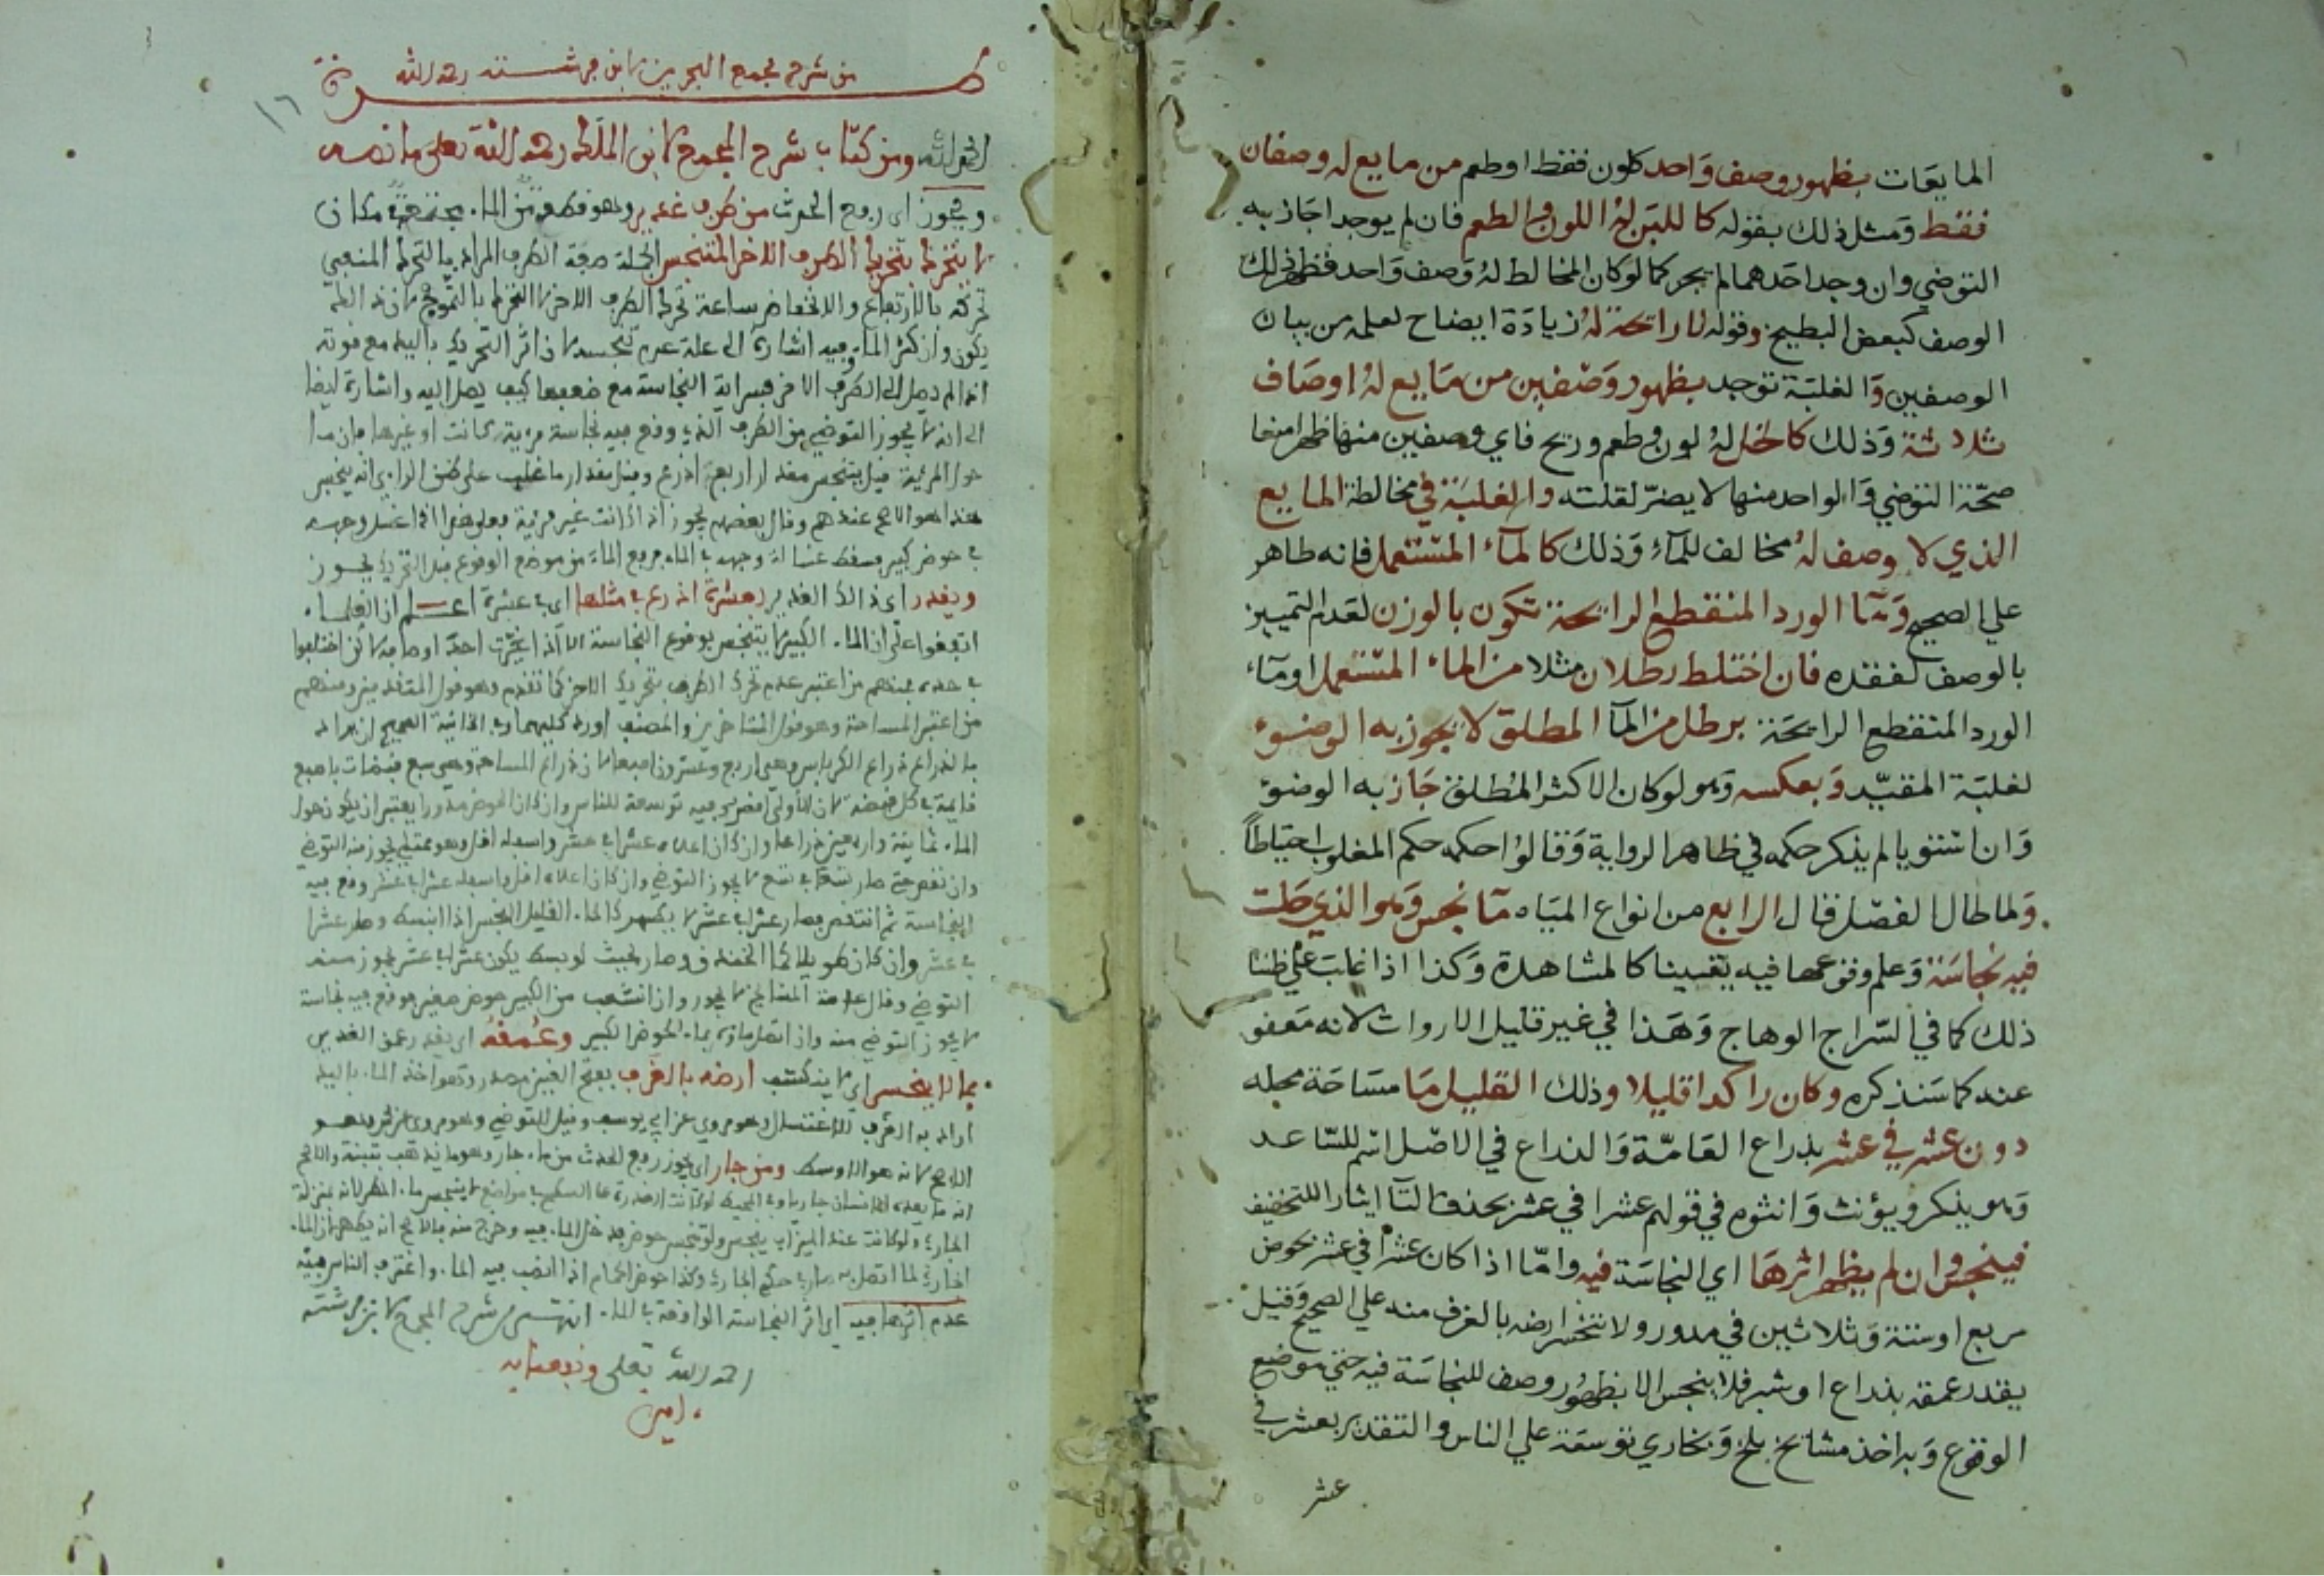 المايعات بظهور وصف واحد كلون فقط او طعم من مايع له وصفان
فقط ومثل ذلك بقوله كاللبن له اللون والطعم فان لم يوجد اجاز به
التوضي وان وجد احدهما لم يجز كما لو كان المخالط له وصف واحد فظهر ذلك
الوصف كبعض البطيخ وقوله لا رائحة له زيادة ايضاح لعلمه من بيان
الوصفين والغلبة توجد بظهور وصفين من مايع له اوصاف
ثلاثة وذلك كالخل له لون وطعم وريح فاي وصفين منها ظهرا منعا
صحة التوضي والواحد منها لا يضر لقلته والغلبة في مخالطة المايع
الذي لا وصف له مخالف للمآء وذلك كالمآء المستعمل فانه طاهر
علي الصحيح ومآء الورد المنقطع الرائحة تكون بالوزن لعدم التمييز
بالوصف لفقده فان اختلط رطلان مثلا من الماء المستعمل او مآء
الورد المنقطع الرائحة برطل من المآ المطلق لا يجوز به الوضوء
لغلبة المقيد وبعكسه وهو لو كان الاكثر المطلق جاز به الوضوء
وان استويا لم يذكر حكمه في ظاهر الرواية وقالوا حكمه حكم المغلوب احتياطاً
ولما طال الفصل قال الرابع من انواع المياه مآ نجس وهو الذي حلت
فيه نجاسة وعلم وقوعها فيه يقينا كالمشاهدة وكذا اذا غلب علي ظننا
ذلك كما في السراج الوهاج وهذا في غير قليل الاروات لانه معفو
عنه كما سنذكره وكان راكدا قليلا وذلك القليل ما مساحة محله
دون عشر في عشر بذراع العامّة والذراع في الاصل اسم للساعد
وهو يذكر ويؤنث وانثوه في قولهم عشرا في عشر بحذف التآ ايثارا للتخفيف
فينجس وان لم يظهر اثرها اي النجاسة فيه وامّا اذا كان عشراً في عشر بحوض
مربع او ستة وثلاثين في مدور ولا تنخسر ارضه بالغرف منه علي الصحيح وقيل
يقدر عمقه بذراع او شبر فلا ينجس الا بظهور وصف للنجاسة فيه حتي موضع
الوقوع وبه اخذ مشايخ بلخ وبخاري توسعة علي الناس والتقدير بعشر في
عشر
من شرح مجمع البحرين لابن فرشته رحمه الله
١٦
الحمد لله ومن كتاب شرح المجمع لابن الملك رحمه الله تعلى ما نصه
ويجوز اى رفع الحدث من طرف غدير وهو قطعة من الما مجتمعة
لا يتحرك بتحريك الطرف الاخر المتنجس الجملة صفة الطرف المراد بالتحرك المنفي
تحركه بالارتفاع والانخفاض ساعة تحرك الطرف الاخر لا التحرك بالتموج لان ذلك
يكون وان كثر الما وفيه اشارة الى علة عدم تنجسه لان اثر التحريك باليد مع قوته
اذا لم يصل الى الطرف الاخر فسراية النجاسة مع ضعفها كيف يصل اليه واشارة ايضا
الى انه لا يجوز التوضي من الطرف الذي وقع فيه نجاسة مرية كانت او غيرها
حول المرئية قيل يتنجس مقدار اربعة اذرع وقيل مقدار ما غلب على ظن الراى انه ينجس
هذا هو الاصح عندهم وقال بعضهم يجوز اذا كانت غير مرية فعلى هذا اذا غسل وجهه
في حوض كبير فسقط غسالة وجهه في الماء فرفع الماء من موضع الوقوع قبل التحريك يجوز
ويقدر اى ذلك الغدير بعشرة اذرع في مثلها اى في عشرة اعلم ان العلما
اتفقوا على ان الما الكبير لا يتنجس بوقوع النجاسة الا اذا تغيرت احد اوصافه لكن اختلفوا
في حده فمنهم من اعتبر عدم تحرك الطرف بتحريك الاخر كما تقدم وهو قول المتقدمين ومنهم
من اعتبر المساحة وهو قول المتاخرين والمصنف اورد كليهما
بالذراع ذراع الكرباس وهي اربع وعشرون اصبعا لان ذراع المساحة وهي سبع قبضات باصبع
قايمة في كل قبضة لان الاولى اقصر وفيه توسعة للناس وان كان الحوض مدورا يعتبر ان يكون حول
الما ثمانية واربعين ذراعا وان كان اعلاه عشرا في عشر واسفله اقل وهو ممتلي يجوز منه التوضي
وان نقص حتى صار تسعا في تسع لا يجوز التوضي وان كان اعلاه اقل واسفله عشرا في عشر وقع فيه
النجاسة ثم انتقص فصار عشرا في عشر لا يطهر الما القليل النجس اذا انبسط وصار عشرا
في عشر وان كان طويلا لكن وصار بحيث لو بسط يكون عشرا في عشر يجوز منه
التوضي وقال عامة المشايخ لا يجوز وان انشعب من الكبير حوض صغير فوقع فيه نجاسة
لا يجوز التوضي منه وان اتصل ماؤه بما الحوض الكبير وعمقه اى يقدر عمق الغدير
بما لا ينخسر اى لا ينكشف ارضه بالغرف بفتح الغين مصدر وهو اخذ الما باليد
اراد به الغرف للاغتسال وهو مروي عن ابي يوسف وقيل للتوضي وهو مروي عن محمد وهو
الاصح لانه هو الاوسط ومن جار اى يجوز رفع الحدث من ما جار وهو ما يذهب بتبنة والاصح
انه ما يعده الانسان جاريا وفي المحيط لو كانت العذرة على السطح في مواضع لا ينجس ما المطر لانه بمنزلة
الجاري ولو كانت عند الميزاب ينجس ولو تنجس حوض فدخل الما فيه وخرج منه فالاصح انه يطهر لان الما
الجاري لما اتصل به صار في حكم الجاري وكذا حوض الحمام اذا انصب فيه الما واغترف الناس منه
عدم اثرها فيه اى اثر النجاسة الواقعة في الما انتهى من شرح المجمع لابن فرشته
رحمه الله تعلى ونفعنا به
امين